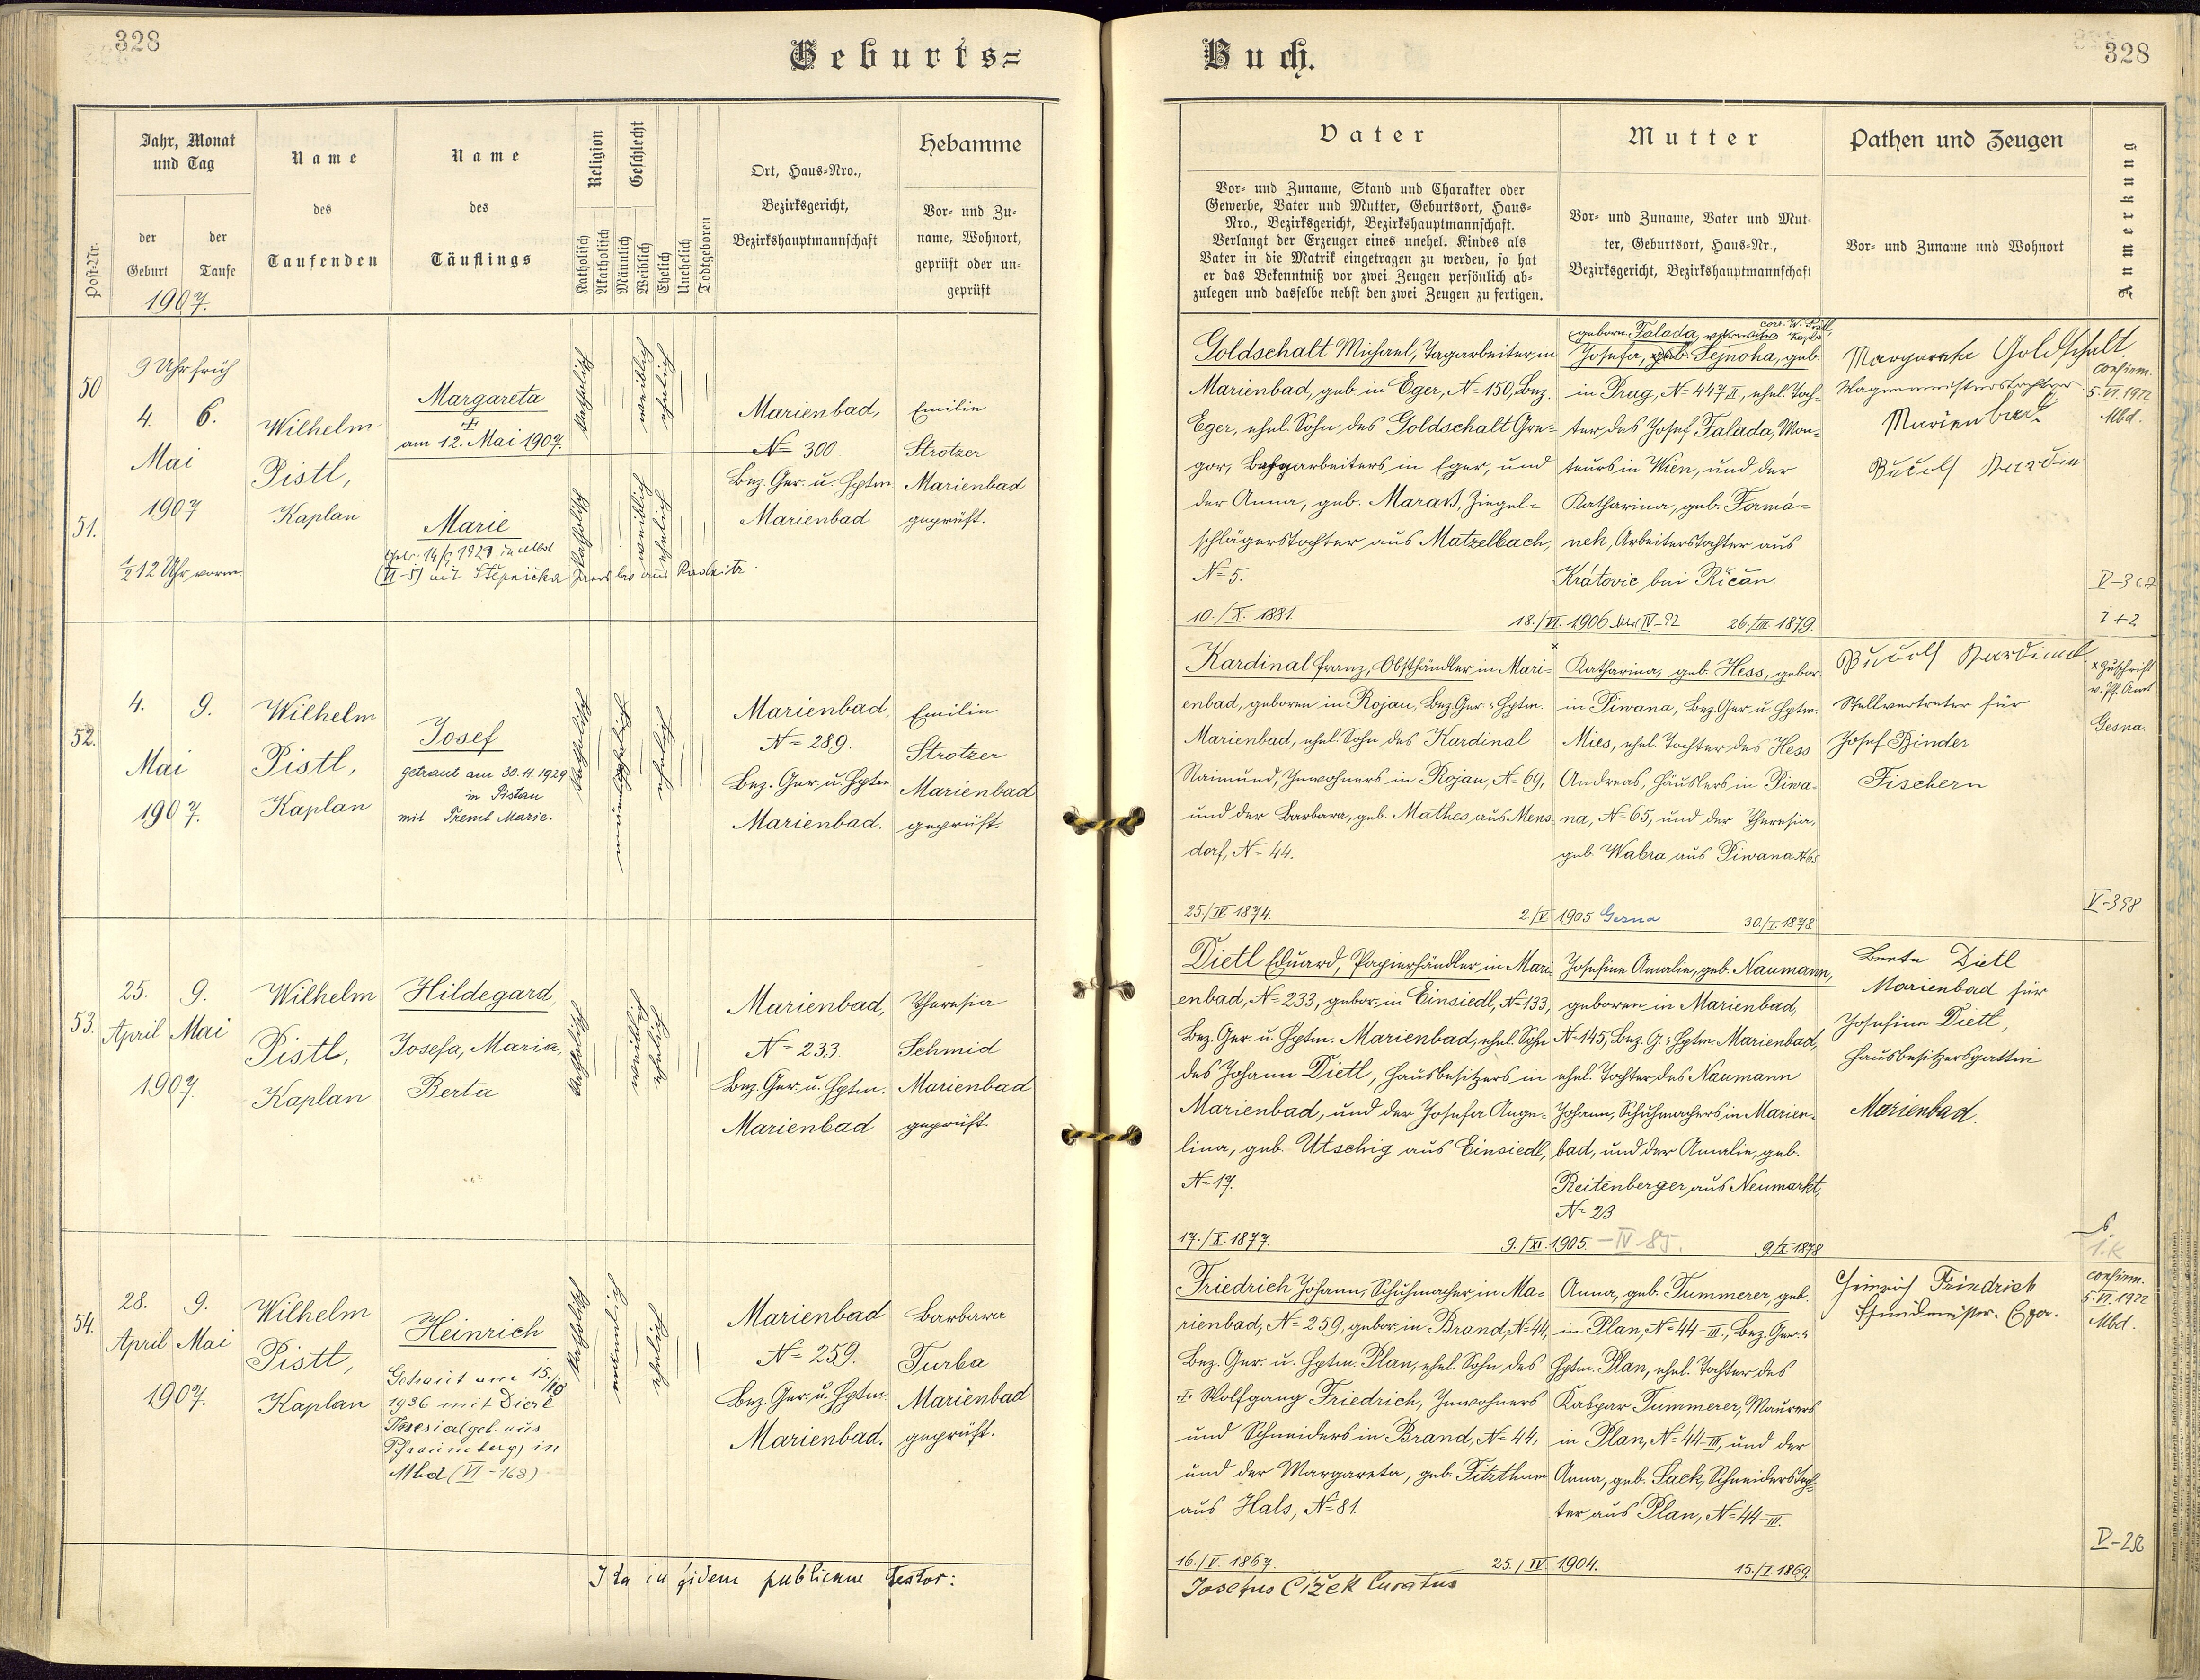 328
Geburts=
Jahr, Monat
und Tag
Name
des
Taufenden
Name
des
Täuflings
Religion
Geschlecht
Ort, Haus-Nro.,
Bezirksgericht,
Bezirkshauptmannschaft
Hebamme
Vor- und Zu-
name, Wohnort,
geprüft oder un-
geprüft
Post-Nr.
der
Geburt
der
Taufe
1907.
Katholisch
Akatholisch
Männlich
Weiblich
Ehelich
Unehelich
Todtgeboren
50
9 Uhr früh
4. 6.
Mai
1907
51.
½ 12 Uhr vorm.
Wilhelm
Pistl,
Kaplan
Margareta
am 12. Mai 1907.
Marie
(VI-5) mit Štěpnička
katholisch
weiblich
ehelich
katholisch
weiblich
ehelich
Marienbad,
N= 300
Bez. Ger. u. Hptm.
Marienbad
Emilie
Strotzer
Marienbad
geprüft.
52.
4. 9.
Mai
1907.
Wilhelm
Pistl,
Kaplan
Josef
getraut am 30.4.1929
in Pistau
mit Tremt Marie.
katholisch
männlich
ehelich
Marienbad,
N= 289.
Bez. Ger. u. Hptm.
Marienbad.
Emilie
Strotzer
Marienbad
geprüft.
53.
25. 9.
April Mai
1907.
Wilhelm
Pistl,
Kaplan.
Hildegard,
Josefa, Maria,
Berta
katholisch
weiblich
ehelich
Marienbad,
N= 233.
Bez. Ger. u. Hptm.
Marienbad
Theresia
Schmid
Marienbad
geprüft.
54.
28. 9.
April Mai
1907.
Wilhelm
Pistl,
Kaplan
Heinrich
Getraut am 15./
1936 mit
Theresia (geb. aus
Pfraumberg) in
Mbd (VI-168)
katholisch
männlich
ehelich
Marienbad
N= 259.
Bez. Ger. u. Hptm.
Marienbad.
Barbara
Turba
Marienbad
geprüft.
Ita in fidem publicam testor:
Buch.
328
Vater
Vor- und Zuname, Stand und Charakter oder
Gewerbe, Vater und Mutter, Geburtsort, Haus-
Nro., Bezirksgericht, Bezirkshauptmannschaft.
Verlangt der Erzeuger eines unehel. Kindes als
Vater in die Matrik eingetragen zu werden, so hat
er das Bekenntniß vor zwei Zeugen persönlich ab-
zulegen und dasselbe nebst den zwei Zeugen zu fertigen.
Mutter
Vor- und Zuname, Vater und Mut-
ter, Geburtsort, Haus-Nr.,
Bezirksgericht, Bezirkshauptmannschaft
Pathen und Zeugen
Vor- und Zuname und Wohnort
Anmerkung
Goldschalt Michael, Tagarbeiter in
Marienbad, geb. in Eger, N= 150, Bez.
Eger, ehel. Sohn des Goldschalt Gre-
gor, arbeiters in Eger, und
der Anna, geb. Ziegel-
schlägerstochter aus Matzelbach,
N= 5.
10./X. 1881.
geborn. Falada, verwitwete
Josefa, geb. Sejnoha, geb.
in Prag, N= 447 II., ehel. Toch-
ter des Josef Falada, Mon-
teurs in Wien, und der
Katharina, geb. Formá-
nek, Arbeiterstochter aus
Krátovic bei Říčan.
18./VI. 1906 IV-92 26./III. 1879.
Margareta Goldschalt
Wagenmeisterstochter
Marienbad
confirm.
5.VI.1922
Mbd.
1+2
Kardinal Franz, Obsthändler in Mari-
enbad, geboren in Rojau, Bez. Ger. u. Hptm.
Marienbad, ehel. Sohn des Kardinal
Raimund, Inwohners in Rojau, N= 69,
und der Barbara, geb. Mathes aus Mens-
dorf, N= 44.
25./IV. 1874.
Katharina, geb. Hess, gebor.
in Piwana, Bez. Ger. u. Hptm.
Mies, ehel. Tochter des Hess
Andreas, Häuslers in Piwa-
na, N= 65, und der Theresia,
geb. Wabra aus Piwana N= 65
2./V. 1905 Gesna 30./I. 1878
Rudolf Kardinal
Stellvertreter für
Josef Binder
Fischern
x Zuschrift
v. Pf. Amt
Gesna.
V-398
Dietl Eduard, Papierhändler in Mari-
enbad, N= 233, gebor. in Einsiedl, N= 133,
Bez. Ger. u. Hptm. Marienbad, ehel. Sohn
des Johann Dietl, Hausbesitzers in
Marienbad, und der Josefa Ange-
lina, geb. Utschig aus Einsiedl,
N= 17.
17./X. 1877.
Josefine Amalie, geb. Naumann,
geboren in Marienbad,
N= 145, Bez. G. u. Hptm. Marienbad,
ehel. Tochter des Naumann
Johann, Schuhmachers in Marien-
bad, und der Amalie, geb.
Reitenberger aus Neumarkt,
N= 23
9./XI. 1905. - IV-85. 9./X. 1878
Berta Dietl
Marienbad für
Josefine Dietl,
Hausbesitzersgattin
Marienbad.
Friedrich Johann, Schuhmacher in Ma-
rienbad, N= 259, gebor. in Brand, N= 44,
Bez. Ger. u. Hptm. Plan, ehel. Sohn des
Wolfgang Friedrich, Inwohners
und Schneiders in Brand, N= 44,
und der Margareta, geb. Fitzthum
aus Hals, N= 81.
16./V. 1867.
Anna, geb. Tummerer, geb.
in Plan, N= 44-III., Bez. Ger. u.
Hptm. Plan, ehel. Tochter des
Kaspar Tummerer, Maurers
in Plan, N= 44-III, und der
Anna, geb. Sack, Schneiderstoch-
ter aus Plan, N= 44-III.
25./IV. 1904. 15./I. 1869.
Heinrich Friedrich
confirm.
5.VI.1922
Mbd.
Josefus Čížek Curatus